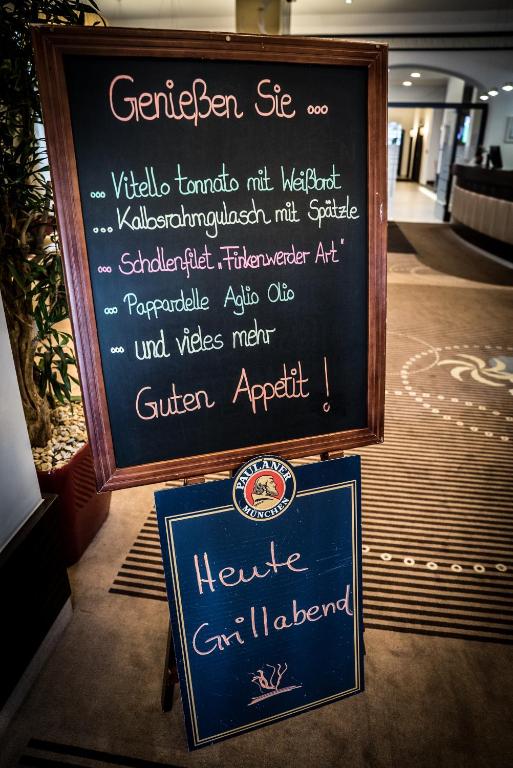 Genießen Sie ...
... Vitello tonnato mit Weißbrot
... Kalbsrahmgulasch mit Spätzle
... Schollenfilet „Finkenwerder Art"
... Pappardelle Aglio Olio
... und vieles mehr
Guten Appetit !
PAULANER
MÜNCHEN
Heute
Grillabend